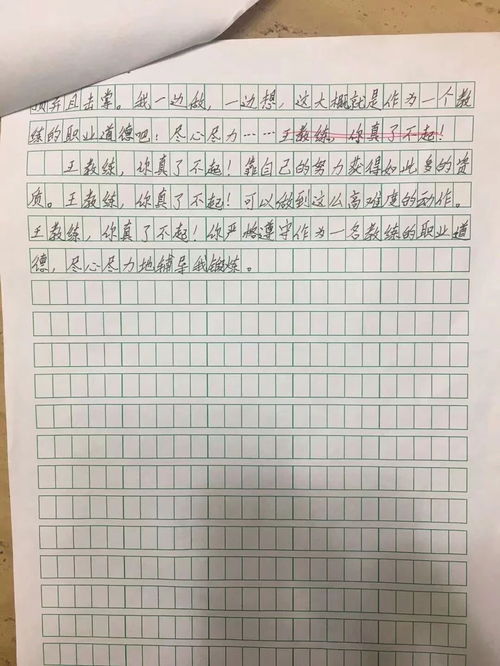 并且击掌。我一边做，一边想，这大概就是作为一个教
练的职业道德吧：尽心尽力……王教练，你真了不起！
王教练，你真了不起！靠自己的努力获得如此多的资
质。王教练，你真了不起！可以做到这么高难度的动作。
王教练，你真了不起！你严格遵守作为一名教练的职业道
德，尽心尽力地辅导我锻炼。